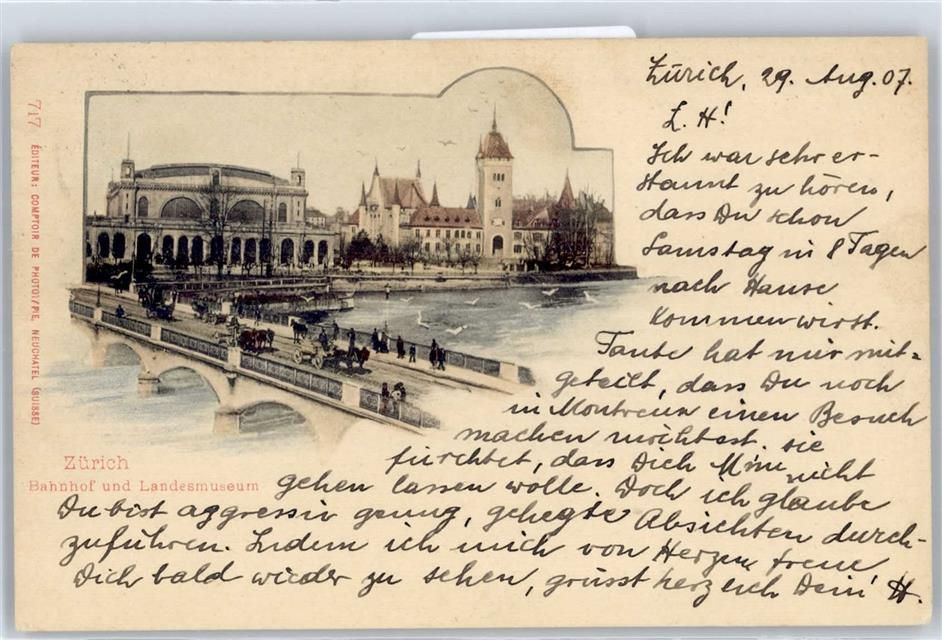 Zürich, 29. Aug. 07.
L. H!
Ich war sehr er-
staunt zu hören,
dass Du schon
Samstag in 8 Tagen
nach Hause
kommen wirst.
Tante hat mir mit=
geteilt, dass Du noch
in Montreux einen Besuch
machen möchtest. Sie
fürchtet, dass Dich nicht
gehen lassen wolle. Doch ich glaube
Du bist aggressiv genug, gehegte Absichten durch-
zuführen. Indem ich mich von Herzen freue
Dich bald wieder zu sehen, grüsst herzlich Dein H.
Zürich
Bahnhof und Landesmuseum
717 ÉDITEUR: COMPTOIR DE PHOTOTYPIE, NEUCHATEL (SUISSE)